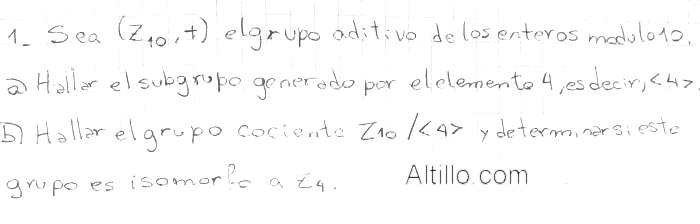 1_ Sea (Z10,+) el grupo aditivo de los enteros modulo 10.
a) Hallar el subgrupo generado por el elemento 4, es decir, <4>.
b) Hallar el grupo cociente Z10/<4> y determinar si este
grupo es isomorfo a Z4. Altillo.com